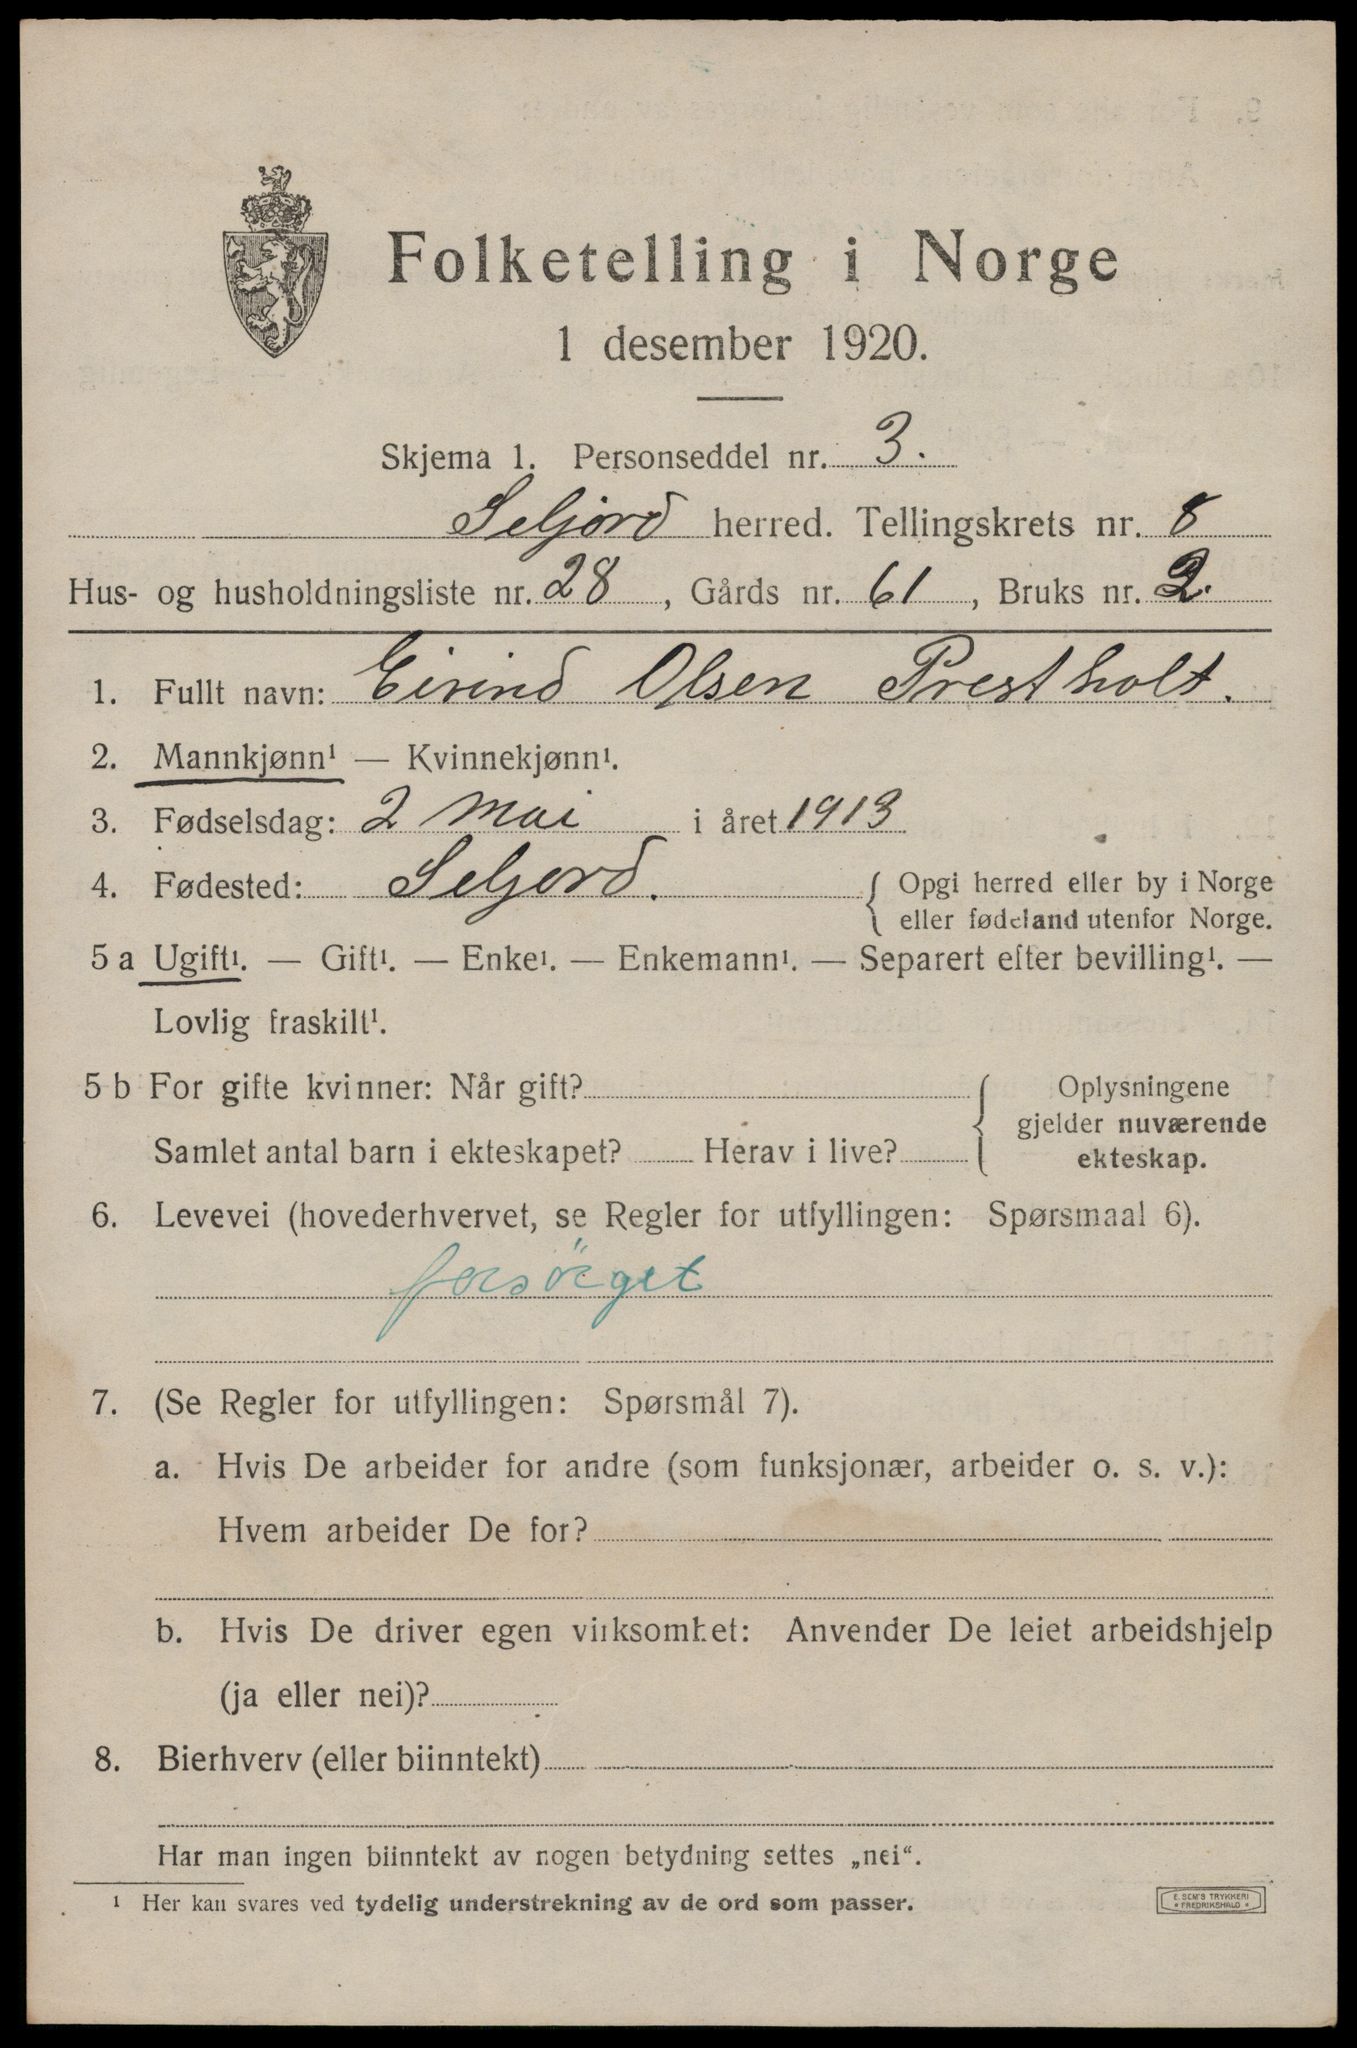 Folketelling i Norge
1 desember 1920.
Skjema 1. Personseddel nr. 3.
Seljord herred. Tellingskrets nr. 8
Hus- og husholdningsliste nr. 28, Gårds nr. 61, Bruks nr. 2.
1. Fullt navn: Eivind Olsen Prestholt.
2. Mannkjønn¹ — Kvinnekjønn¹.
3. Fødselsdag: 2 mai i året 1913
4. Fødested: Seljord. { Opgi herred eller by i Norge
eller fødeland utenfor Norge.
5 a Ugift¹. — Gift¹. — Enke¹. — Enkemann¹. — Separert efter bevilling¹. —
Lovlig fraskilt¹.
5 b For gifte kvinner: Når gift? { Oplysningene
gjelder nuværende
Samlet antal barn i ekteskapet? Herav i live? ekteskap.
6. Levevei (hovederhvervet, se Regler for utfyllingen: Spørsmaal 6).
forsörget
7. (Se Regler for utfyllingen: Spørsmål 7).
a. Hvis De arbeider for andre (som funksjonær, arbeider o. s. v.):
Hvem arbeider De for?
b. Hvis De driver egen virksomhet: Anvender De leiet arbeidshjelp
(ja eller nei)?
8. Bierhverv (eller biinntekt)
Har man ingen biinntekt av nogen betydning settes „nei“.
¹ Her kan svares ved tydelig understrekning av de ord som passer.
E. SEM'S TRYKKERI
* FREDRIKSHALD *